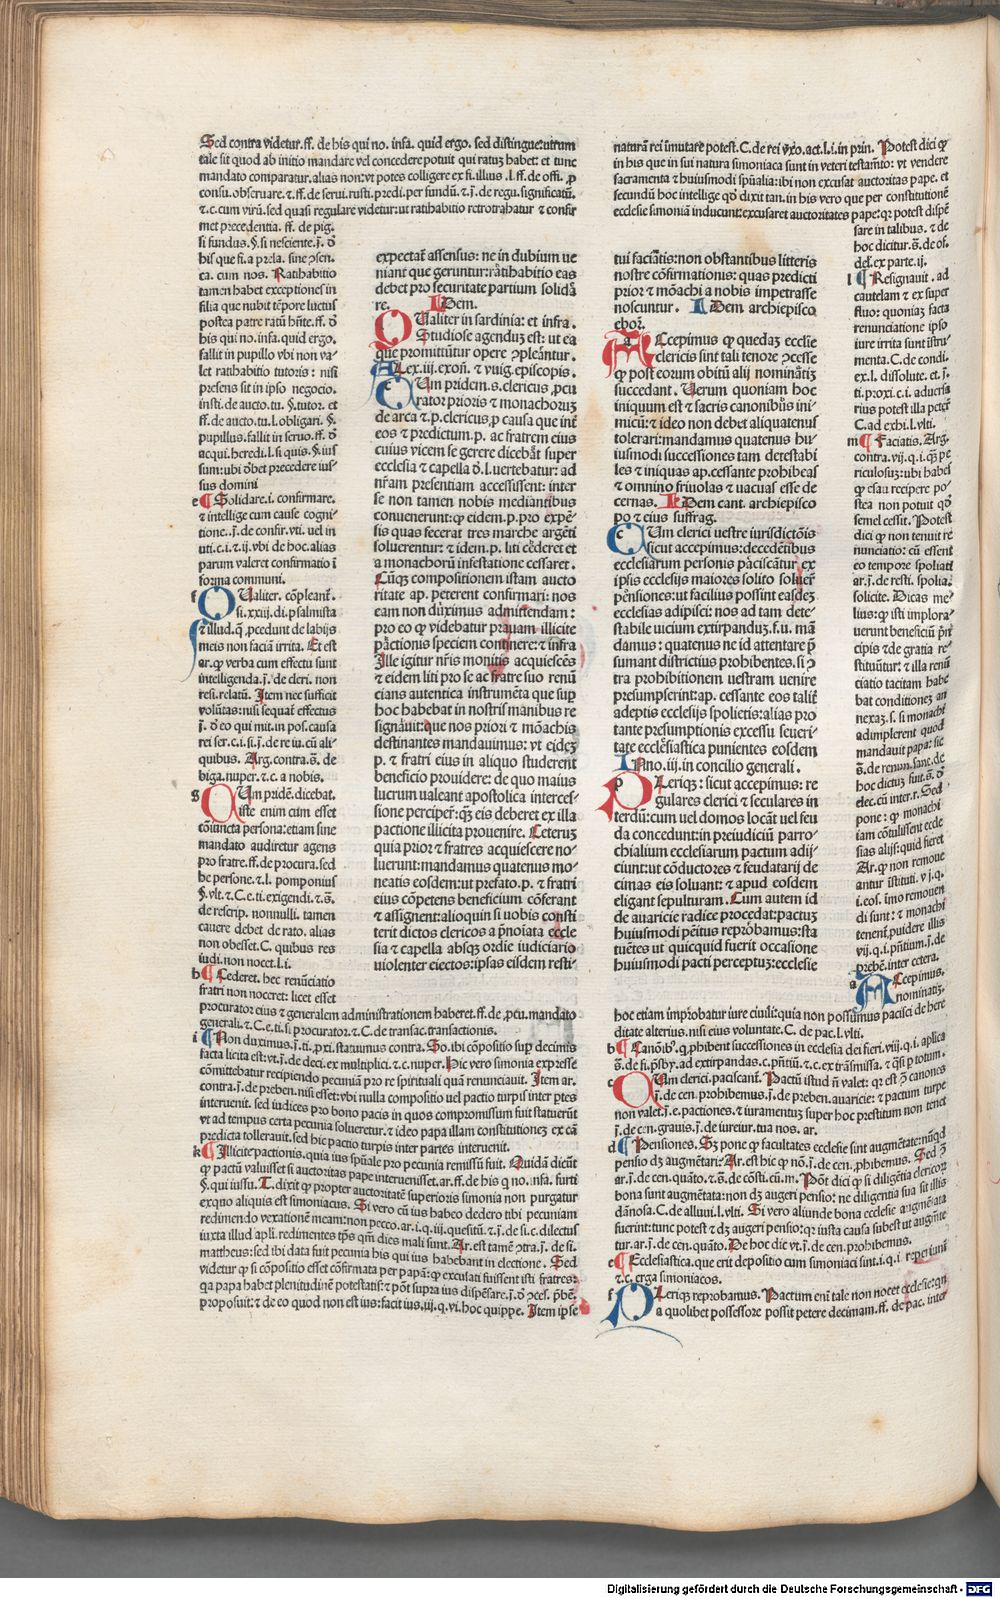 Sed contra videtur.ff. de his qui no. infa. quid ergo. sed distingue:utrum
tale sit quod ab initio mandare vel concedere potuit qui ratuz habet: et tunc
mandato comparatur. alias non:vt potes colligere ex fi. illius .l. ff. de offi. p̱
consu. obseruare. ⁊ ff. de serui. rusti. predi. per fundū. ⁊ .j. de regu. significatū.
⁊.c. cum virū. sed quasi regulare videtur: ut ratihabitio retrotrahatur ⁊ confir
met precedentia. ff. de pig.
si fundus. §. si nesciente.
his que fi. a prela. sine
ca. cum nos. Ratihabitio
tamen habet exceptiones in
filia que nubit tēpore luctus
postea patre ratū hñte. ff. ð
his qui no. infa. quid ergo.
fallit in pupillo vbi non va-
let ratihabitio tutoris : nisi
presens sit in ipso negocio.
insti. de aucto. tu. §. tutor. et
ff. de aucto. tu. l. obligari. §.
pupillus. fallit in seruo. ff. ð
acqui. heredi. l. si quis. §. ius
sum: ubi ðbet precedere ius-
sus domini
e ¶ Solidare. i. confirmare.
⁊ intellige cum cause cogni-
tione. j. de confir. vti. vel in
uti. c. i. ⁊ ij. vbi de hoc. alias
parum valeret confirmatio ī
forma communi.
f QUaliter. cōpleant̄.
si. xxij. di. p̄ salmista
⁊ illud. q̄ .pcedunt de labijs
meis non faciā irrita. Et est
ar. ꝙ verba cum effectu sunt
intelligenda. j. de cleri. non
resi. relatū. Item nec sufficit
volūtas: nisi sequat̄ effectus
j. ð eo qui mit. in pos. causa
rei ser. c. i. si. j. de re iu. cū ali-
quibus. Arg. contra. s̄. de
biga. nuper. ⁊ c. a nobis.
g CUm pridē. dicebat.
iste enim cum esset
cōiuncta persona: etiam sine
mandato audiretur agens
pro fratre. ff. de procura. sed
he persone. ⁊ l. pomponius
§. vlt. ⁊ C. e. ti. exigendi. ⁊ s̄.
de rescrip. nonnulli. tamen
cauere debet de rato. alias
non obesset. C. quibus res
iudi. non nocet. l. i.
h ¶ Cederet. hec renūciatio
fratri non noceret: licet esset
procurator eius ⁊ generalem administrationem haberet. ff. de .pcu. mandato
generali. ⁊ C. e. ti. si procurator. ⁊ C. de transac. transactionis.
i ¶ Non duximus. j. ti. .pxi. statuimus contra. So. ibi cōpositio suꝑ decimis
facta licita est: vt. j. de deci. ex multiplici. ⁊ c. nuper. Hic vero simonia expresse
cōmittebatur recipiendo pecuniā pro re spirituali quā renunciauit. Item ar.
contra. j. de preben. nisi esset: vbi nulla compositio uel pactio turpis inter ꝑtes
interuenit. sed iudices pro bono pacis in quos compromissum fuit statuerūt
vt ad tempus certa pecunia solueretur. ⁊ ideo papa illam constitutionez ex cā
predicta tollerauit. sed hic pactio turpis inter partes interuenit.
k ¶ Illicite pactionis. quia ius spūale pro pecunia remissū fuit. Quidā dicūt
ꝙ pactū valuisset si auctoritas pape interuenisset. ar. ff. de his q no. infa. furti
§. qui iussu. T. dixit ꝙ propter auctoritatē superioris simonia non purgatur
exquo aliquis est simoniacus. Si vero cū ius habeo dedero tibi pecuniam
redimendo vexationē meam: non pecco. ar. i. q. iij. quesitū. ⁊ j. de si. c. dilectus
iuxta illud apli. redimentes tp̄s qm̄ dies mali sunt. Ar. est tamē ɔtra. j. de si.
mattheus: sed ibi data fuit pecunia his qui ius habebant in electione. Sed
videtur ꝙ si cōpositio esset cōfirmata per papā: ꝙ excusati fuissent isti fratres:
qa papa habet plenitudinē potestatis: ⁊ pōt supra ius dispēsare. j. ð ɔces. p̄bē.
proposuit: ⁊ de eo quod non est ius: facit ius. iij. q. vi. hoc quippe. Item ipse
expectat̄ assensus: ne in dubium ue
niant que geruntur: ratihabitio eas
debet pro securitate partium solida
re. IDem.
QUaliter in sardinia: et infra.
Studiose agenduz est: ut ea
que promittūtur opere ɔpleāntur.
Alex. iij. exoñ. ⁊ vuig. episcopis.
c CUm pridem. s. clericus .pcu
rator prioris ⁊ monachoruz
de arca ⁊ p. clericus. p causa que int̄
eos ⁊ predictum. p. ac fratrem eius
cuius vicem se gerere dicebat̄ super
ecclesia ⁊ capella ð. l. uertebatur: ad
nr̄am presentiam accessissent: inter
se non tamen nobis mediantibus
conuenerunt: ꝙ eidem. p. pro expē-
sis quas fecerat tres marche argēti
soluerentur: ⁊ idem. p. liti cederet et
a monachorū infestatione cessaret.
Cūqꝫ compositionem istam aucto
ritate ap. peterent confirmari: nos
eam non duximus admittendam:
pro eo ꝙ videbatur prauam illicite
pactionis speciem continere: ⁊ infra
Ille igitur nr̄is monitis acquiescēs
⁊ eidem liti pro se ac fratre suo renū
cians autentica instrumēta que suꝑ
hoc habebat in nostris manibus re
signauit: que nos priori ⁊ mōachis
destinantes mandauimus: vt eidez
p. ⁊ fratri eius in aliquo studerent
beneficio prouidere: de quo maius
lucrum valeant apostolica interces-
sione perciper̄: qz eis deberet ex illa
pactione illicita prouenire. Ceteruz
quia prior ⁊ fratres acquiescere no-
luerunt: mandamus quatenus mo-
neatis eosdem: ut prefato. p. ⁊ fratri
eius cōpetens beneficium cōferant
⁊ assignent: alioquin si uobis consti
terit dictos clericos a p̄noīata eccle
sia ⁊ capella absqꝫ ordīe iudiciario
uiolenter eiectos: ipsas eisdem resti-
naturā rei īmutare potest. C. de rei vxo. act. l. i. in prin. Potest dici ꝙ
in his que in sui natura simoniaca sunt in veteri testam̄to: vt vendere
sacramenta ⁊ huiusmodi spūalia: ibi non excusat auctoritas pape. et
secundū hoc intellige qð dixit tan. in his vero que per constitutionē
ecclesie simoniā inducunt: excusaret auctoritates pape: qꝛ potest dispē
sare in talibus. ⁊ de
hoc dicitur. s̄. de of.
del. ex parte. ij.
l ¶ Resignauit. ad
cautelam ⁊ ex super
fluo: quoniaz facta
renunciatione ipso
iure irrita sunt īstru
menta. C. de condi.
ex. l. dissolute. et. j.
ti. proxi. c. i. aduersa
rius potest illa peter̄
C. ad exhi. l. vlti.
m ¶ Faciatis. Arg.
contra. vij. q. i. qꝫ pe
riculosuz: ubi habes
ꝙ esau recipere po-
stea non potuit qð
semel cessit. Potest
dici ꝙ non tenuit re
nunciatio: cū essent
eo tempore spoliati
ar. j. de resti. spolia.
solicite. Dicas me-
lius: ꝙ isti implora-
uerunt beneficiū prī
cipis ⁊ de gratia re-
stituūtur: ⁊ illa renū
ciatio tacitam habe
bat conditionez an
nexaz. s. si monachi
adimplerent quod
mandauit papa: sic
s̄. de renun. sane. de
hoc dictuz fuit. s̄. ð
elec. cū inter. r. Sed
pone: ꝙ monachi
iam cōtulissent eccle
sias alijs: quid fieret
Ar. ꝙ non remoue
antur īstituti. v. j. q.
i. eos. imo remouen
di sunt: ⁊ monachi
tenent̄ puidere illis
vij. q. i. pn̄tium. j. de
prebē. inter cetera.
a ACcepimus.
nominatiz.
hoc etiam īprobatur iure ciuili: quia non possumus pacisci de here
ditate alterius. nisi eius voluntate. C. de pac. l. vlti.
b ¶ Canōib⁹. ꝙ phibent successiones in ecclesia dei fieri. viij. q. i. aplica
s̄. de fi. p̄sby. ad extirpandas. c. pn̄tiū. ⁊ c. ex trāsmissa. ⁊ qsi ꝑ totum.
c CUm clerici. paciscant̄. Pactū istud ñ valet: qꝛ est ɔ canones
j. de cen. prohibemus. j. de preben. auaricie: ⁊ pactum turpe
non valet. j. e. pactiones. ⁊ iuramentuz super hoc prestitum non tenet
j. de cen. grauis. j. de iureiur. tua nos. ar.
d ¶ Pensiones. Sz pone ꝙ facultates ecclesie sint augmētate: nūqd
pensio dz augmētari: Ar. est hic ꝙ nō. j. de cen. phibemus. Sed ɔ
ar. j. de cen. quāto. ⁊ s̄. de cōsti. cū. m. Pōt dici ꝙ si diligētia clericoꝝ
bona sunt augmētata: non dz augeri pensio: ne diligentia sua sit illis
dānosa. C. de alluui. l. vlti. Si vero aliunde bona ecclesie augmētata
fuerint: tunc potest ⁊ dz augeri pensio: qꝛ iusta causa subest ut augmē
tur. ar. j. de cen. quāto. De hoc dic vt. j. de cen. prohibemus.
e ¶ Ecclesiastica. que erit depositio cum simoniaci sint. i. q. i. reperiunt̄
⁊ c. erga simoniacos.
f PLeriqꝫ reprobamus. Pactum eni tale non nocet ecclesie: qn
a quolibet possessore possit petere decimam. ff. de pac. inter
tui faciatis: non obstantibus litteris
nostre cōfirmationis: quas predicti
prior ⁊ mōachi a nobis impetrasse
noscuntur. IDem archiepisco
eboꝝ.
a ACcepimus ꝙ quedaz ecclie
clericis sint tali tenore ɔcesse
ꝙ post eorum obitū alij nominatiz
succedant. Uerum quoniam hoc
iniquum est ⁊ sacris canonibus ini-
micū: ⁊ ideo non debet aliquatenus
tolerari: mandamus quatenus hu-
iusmodi successiones tam detestabi
les ⁊ iniquas ap. cessante prohibeas
⁊ omnino friuolas ⁊ uacuas esse de
cernas. IDem cant. archiepisco
po ⁊ eius suffrag.
c CUm clerici uestre iurisdictōis
sicut accepimus: decedētibus
ecclesiarum personis paciscāntur ex
ipsis ecclesijs maiores solito soluer̄
pēsiones: ut facilius possint easdez
ecclesias adipisci: nos ad tam dete-
stabile uicium extirpanduz. f. u. mā
damus: quatenus ne id attentare p̄
sumant districtius prohibentes. si ɔ
tra prohibitionem uestram uenire
presumpserint: ap. cessante eos talit̄
adeptis ecclesijs spolietis: alias pro
tante presumptionis excessu seueri-
tate ecclesiastica punientes eosdem
INno. iij. in concilio generali.
p PLeriqꝫ: sicut accepimus: re
gulares clerici ⁊ seculares in
terdū: cum uel domos locāt uel feu
da concedunt: in preiudiciū parro-
chialium ecclesiarum pactum adij-
ciunt: ut cōductores ⁊ feudatarij de
cimas eis soluant: ⁊ apud eosdem
eligant sepulturam. Cum autem id
de auaricie radice procedat: pactuz
huiusmodi pēitus reprobamus: sta
tuētes ut quicquid fuerit occasione
huiusmodi pacti perceptuz: ecclesie
Digitalisierung gefördert durch die Deutsche Forschungsgemeinschaft - DFG